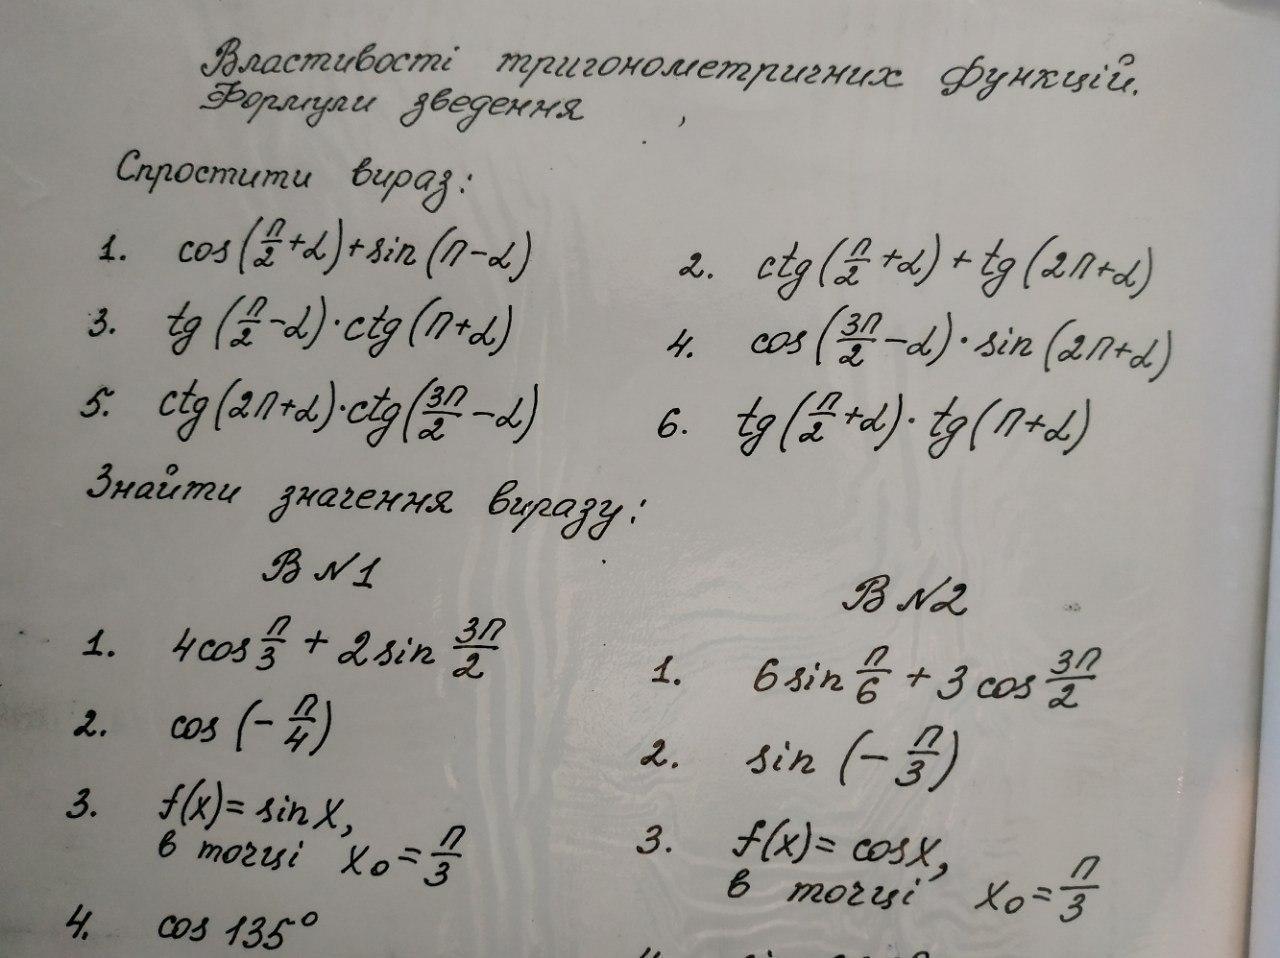 Властивості тригонометричних функцій.
Формули зведення
Спростити вираз:
1. cos(π/2+α)+sin(π-α)
2. ctg(π/2+α)+tg(2π+α)
3. tg(π/2-α)·ctg(π+α)
4. cos(3π/2-α)·sin(2π+α)
5. ctg(2π+α)·ctg(3π/2-α)
6. tg(π/2+α)·tg(π+α)
Знайти значення виразу:
В N1
1. 4cos π/3 + 2sin 3π/2
2. cos(-π/4)
3. f(x)= sin x,
в точці x₀=π/3
4. cos 135°
В N2
1. 6sin π/6 + 3cos 3π/2
2. sin(-π/3)
3. f(x)= cosx,
в точці x₀=π/3